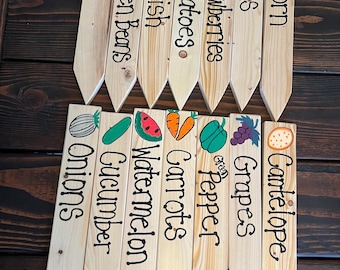 en Beans
ish
atoes
wberries
s
orn
Onions
Cucumber
Watermelon
Carrots
Pepper
Grapes
Cantelope